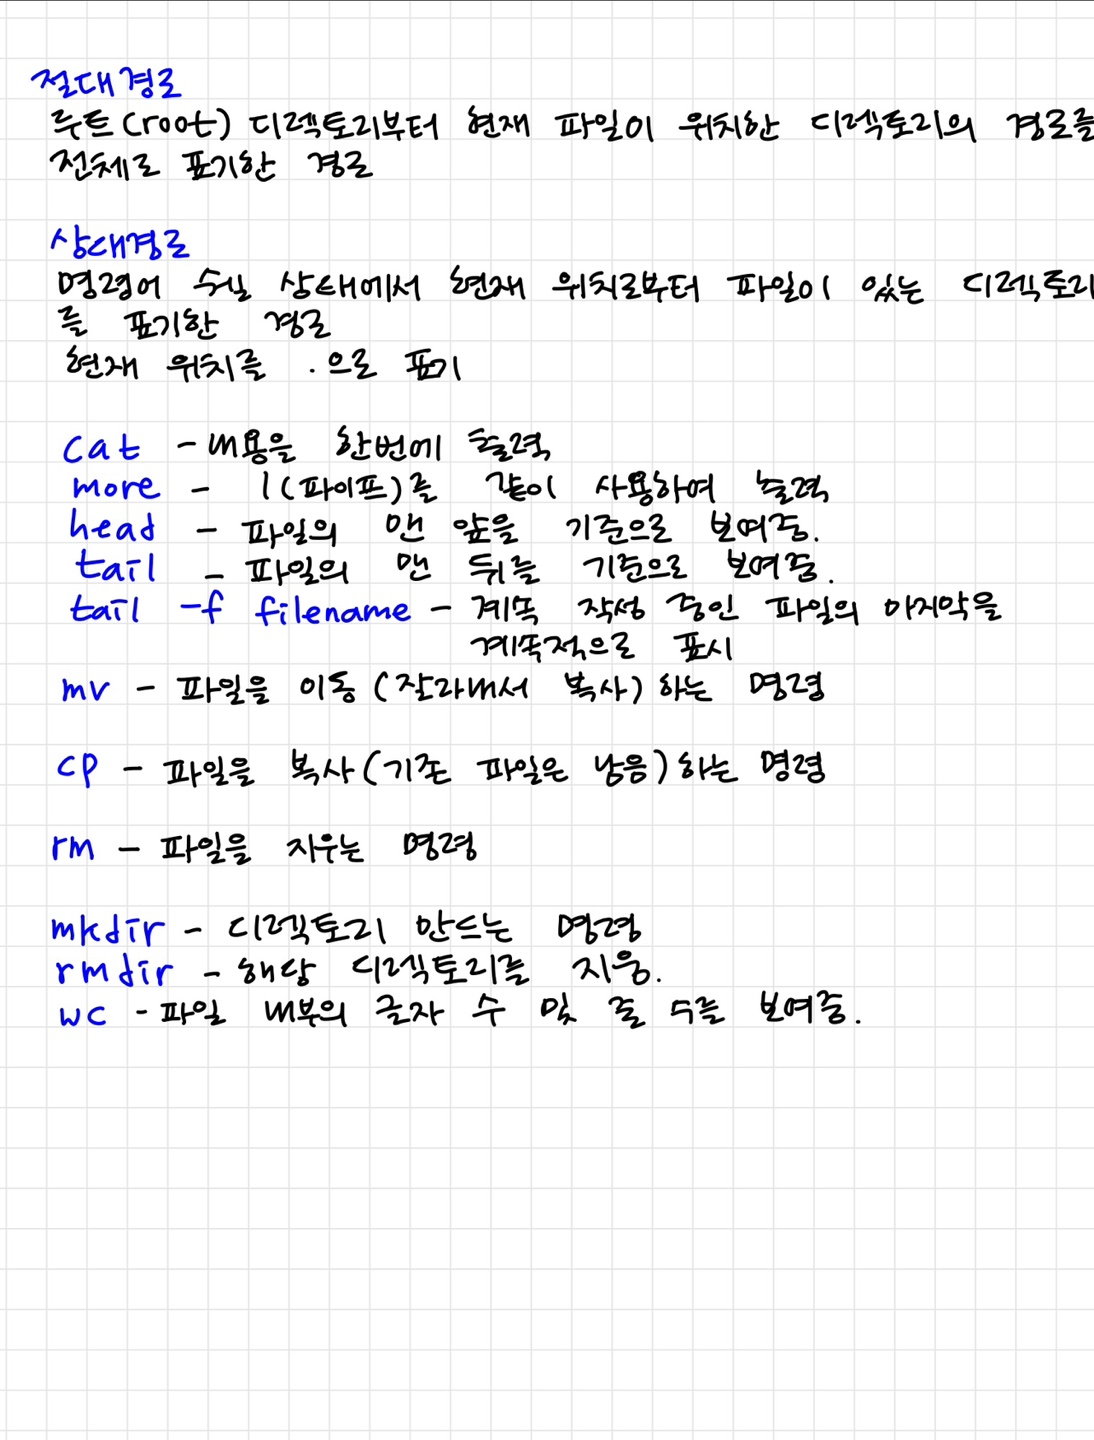 절대경로
루트(root) 디렉토리부터 현재 파일이 위치한 디렉토리의 경로를
전체로 표기한 경로
상대경로
명령어 수실 상태에서 현재 위치로부터 파일이 있는 디렉토리
를 표기한 경로
현재 위치를 .으로 표기
cat - 내용을 한번에 출력
more - |(파이프)를 같이 사용하여 출력
head - 파일의 맨 앞을 기준으로 보여줌.
tail - 파일의 맨 뒤를 기준으로 보여줌.
tail -f filename - 계속 작성 중인 파일의 마지막을
계속적으로 표시
mv - 파일을 이동(잘라내서 복사)하는 명령
cp - 파일을 복사(기존 파일은 남음)하는 명령
rm - 파일을 지우는 명령
mkdir - 디렉토리 만드는 명령
rmdir - 해당 디렉토리를 지움.
wc - 파일 내부의 글자 수 및 줄 수를 보여줌.